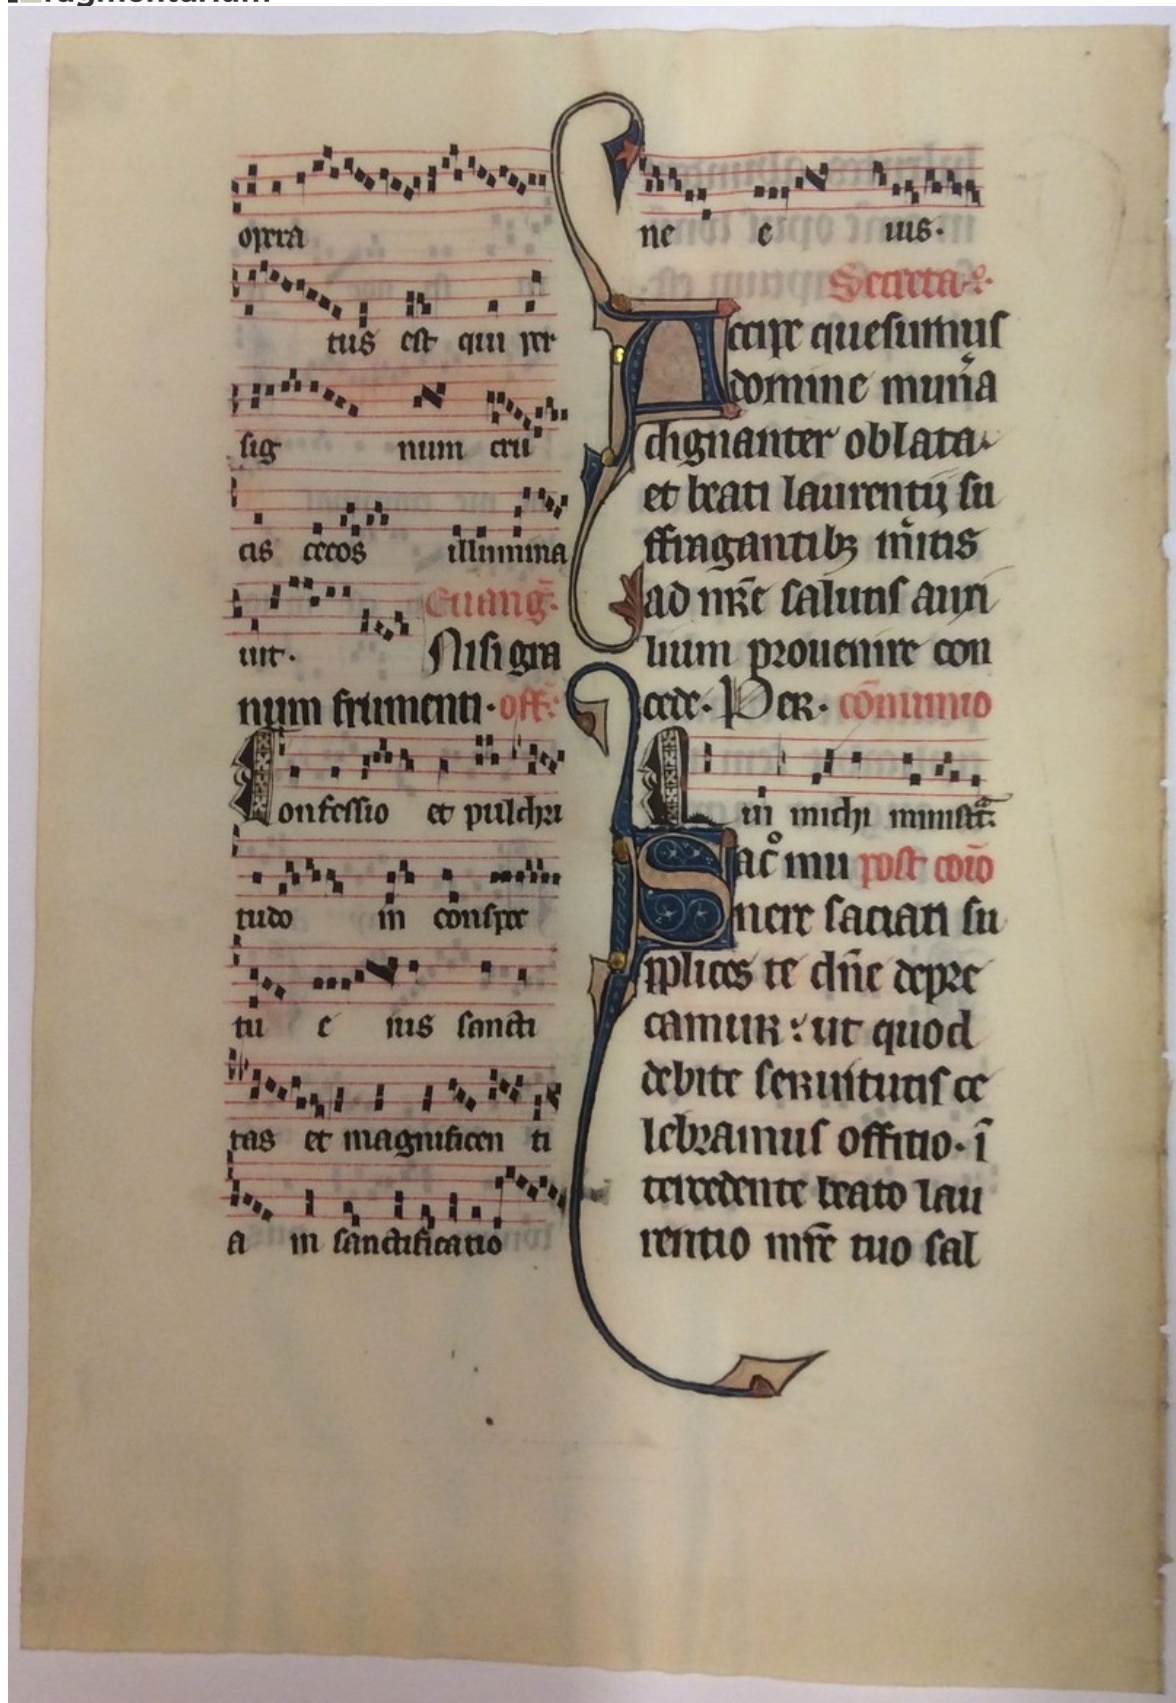 opera
tus est qui per
sig num cru
cis cecos illumina
uit. Euang̅.
Nisi gra
num frumenti. off̅.
Confessio et pulchri
tudo in conspec
tu e ius sancti
tas et magnificen ti
a in sanctificatio
ne e ius.
Secreta.
Accipe quesumus
domine mun̓a
dignanter oblata.
et beati laurentij su
ffragantibꝫ m̓itis
ad nr̅e salutis auxi
lium prouenire con
cede. Per. co̅munio
Qui michi ministᷓt
Sac̊ mu post co̅io̅
nere saciati su
pplices te dn̅e depre
camur : ut quod
debite seruitutis ce
lebramus offitio. i̅
tercedente beato lau
rentio mr̅e tuo sal